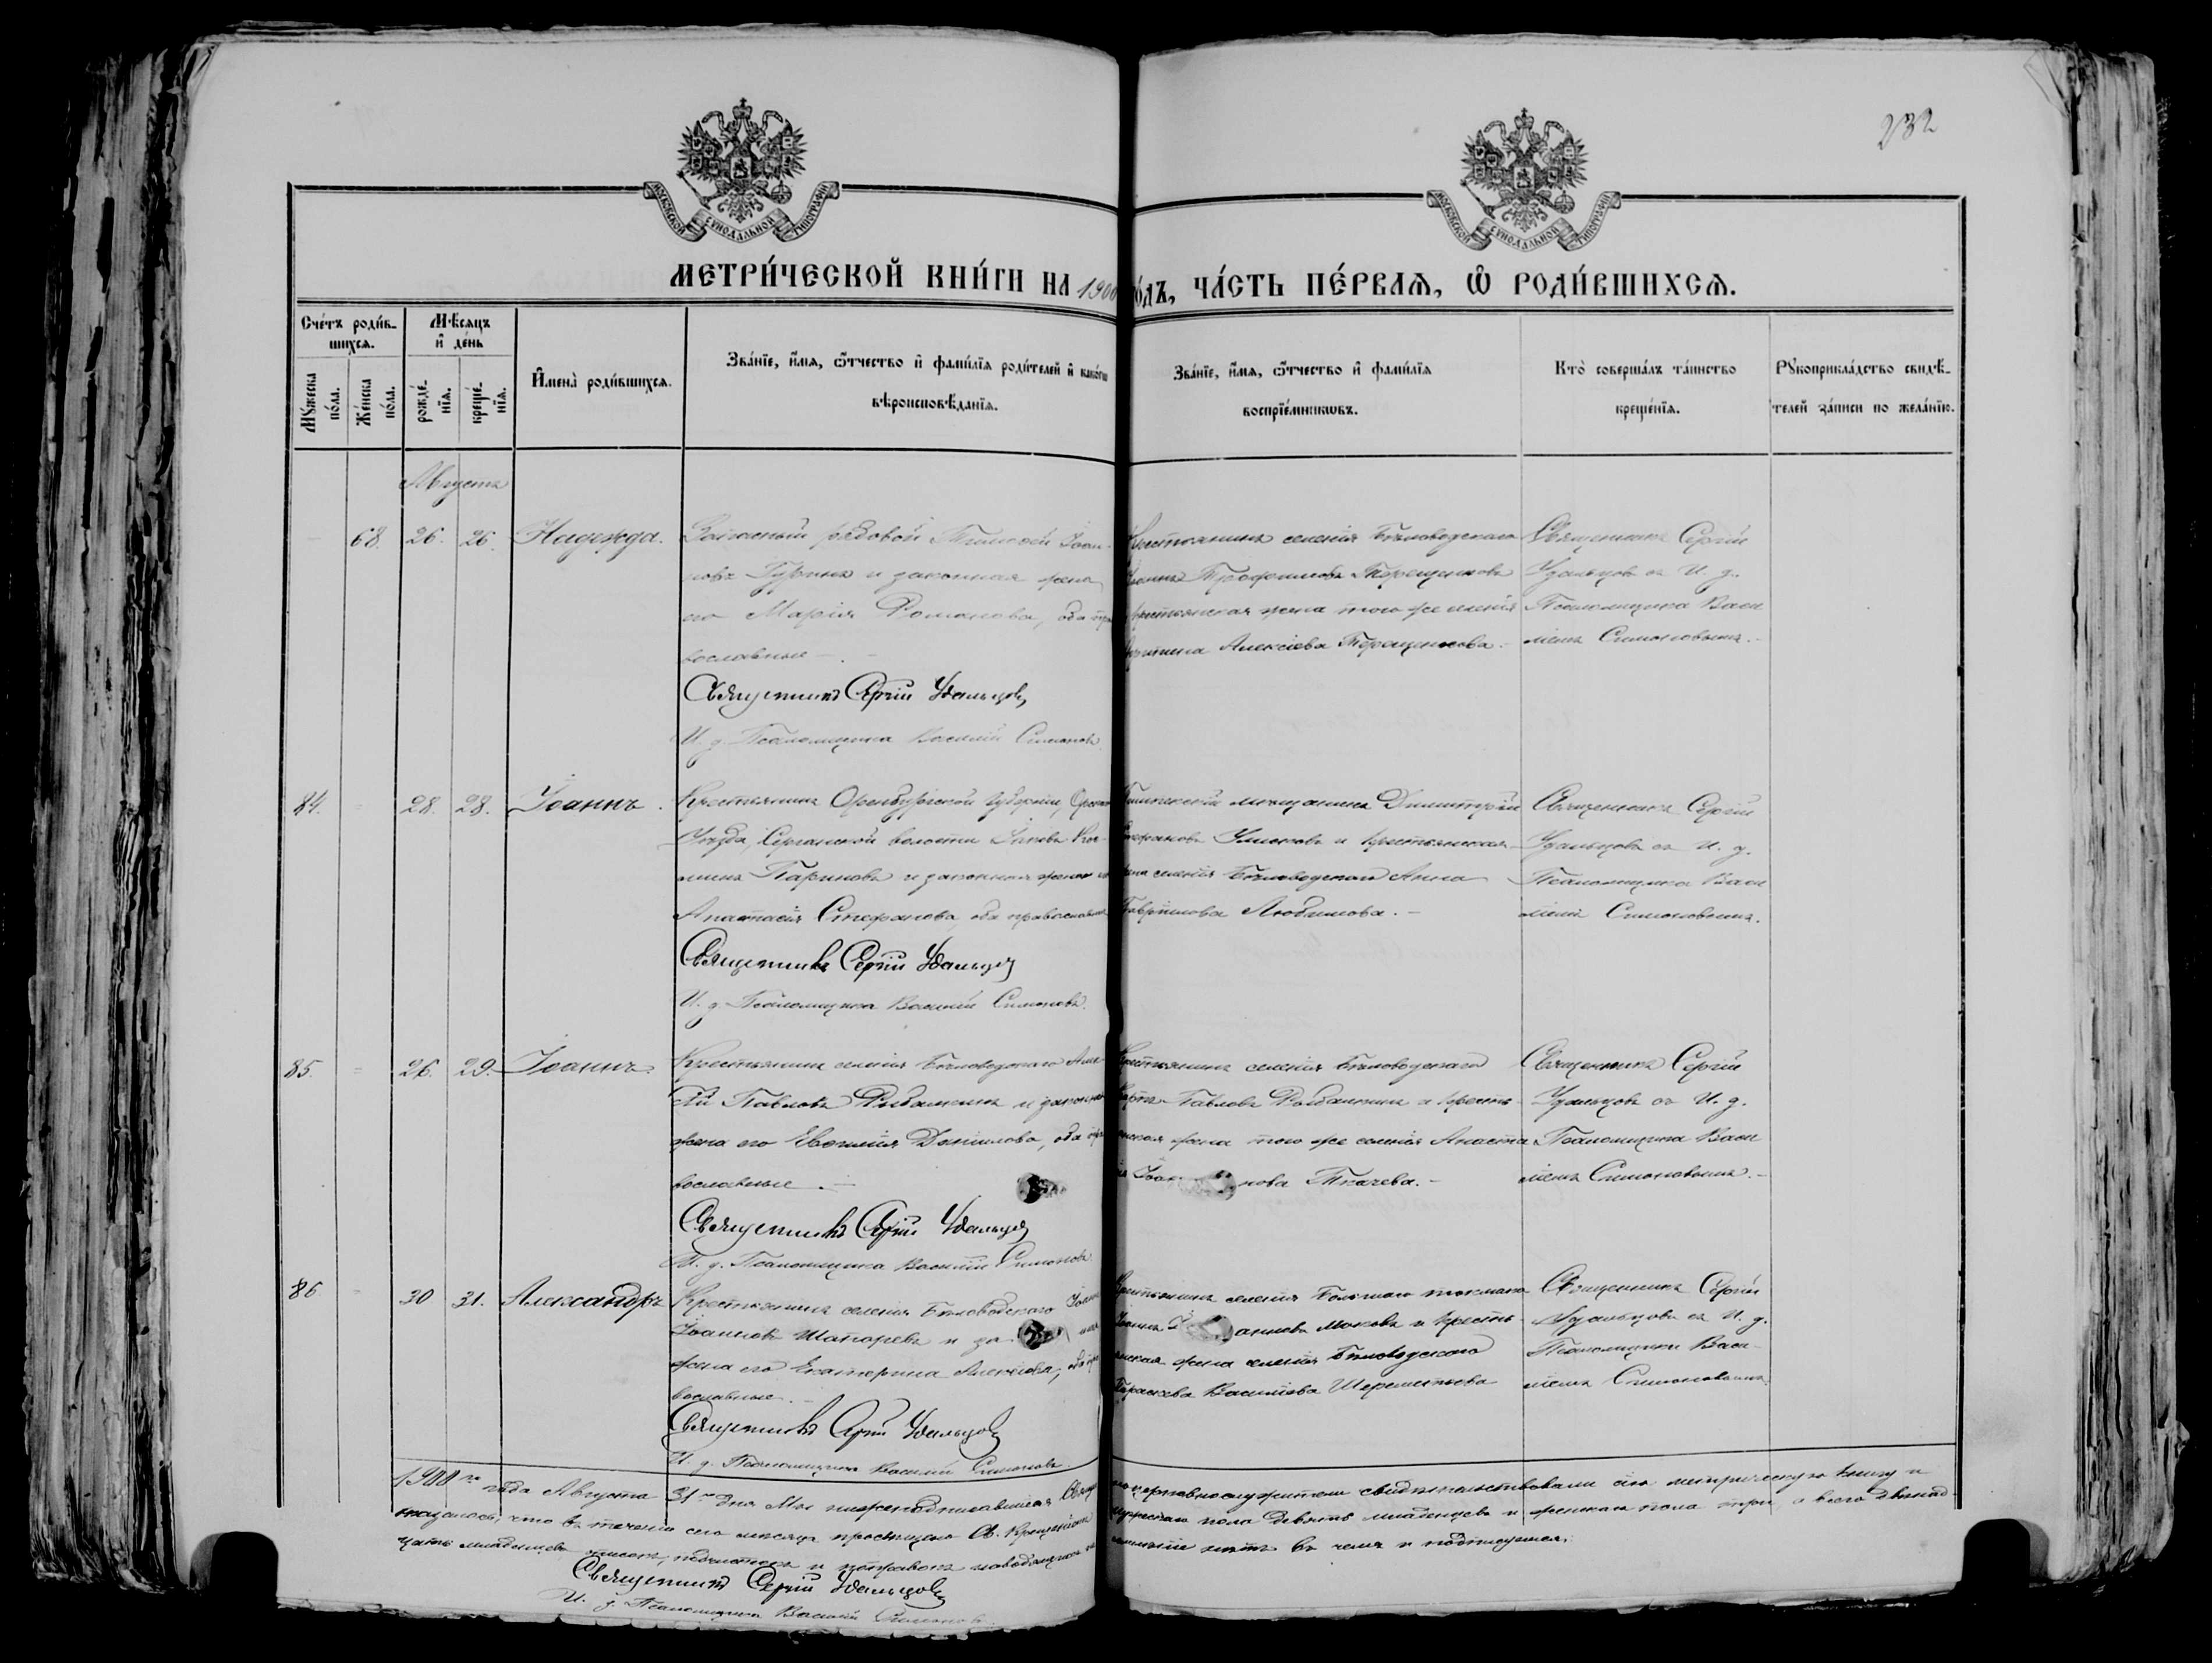 232
МОСКОВСКОЙ СѴНОДАЛЬНОЙ ТИПОГРАФІИ
МОСКОВСКОЙ СѴНОДАЛЬНОЙ ТИПОГРАФІИ
МЕТРИ́ЧЕСКОЙ КНИ́ГИ НА 1900 ГО́ДЪ, ЧА́СТЬ ПЕ́РВАЯ, Ѡ РОДИ́ВШИХСЯ.
Сче́тъ роди́в-
шихся.
Мꙋжеска по́ла.
Же́нска по́ла.
Мѣ́сяцъ и де́нь
рожде́-нїя.
креще́-нїя.
Имена̀ роди́вшихся.
Зва́нїе, и́мя, ѻ́тчество и фами́лїя роди́телей и како́гѡ
вѣроисповѣ́данїя.
Зва́нїе, и́мя, ѻ́тчество и фами́лїя
воспрїе́мникѡвъ.
Кто̀ соверша́лъ та́инство
креще́нїя.
Рꙋкоприкла́дство свидѣ́-
телей за́писи по жела́нїю.
Августъ
68. 26. 26. Надежда.
Запасный рядовой Тимоѳей Іоан-
новъ Гуринъ и законная жена
его Марія Романова, оба пра
вославные
Священникъ Сергій Удальцовъ
И. д. Псаломщика Василій Симоновъ.
Крестьянинъ селенія Бѣловодскаго
Трофимовъ Терещенковъ
крестьянская жена того же селенія
Алексіева Терещенкова.
Священникъ Сергій
Удальцовъ съ И. д.
Псаломщика Васи
ліемъ Симоновымъ.
84. 28. 28. Іоаннъ.
Крестьянинъ Оренбургской губерніи,
Уѣзда, волости
Париновъ и законная жена его
Анастасія Стефанова, оба православные
Священникъ Сергій Удальцовъ
И. д. Псаломщика Василій Симоновъ.
мѣщанинъ Димитрій
Стефановъ и крестьянская
жена селенія Бѣловодскаго Анна
Гавріилова Любимова.
Священникъ Сергій
Удальцовъ съ И. д.
Псаломщика Васи
ліемъ Симоновымъ.
85. 26. 29. Іоаннъ.
Крестьянинъ селенія Бѣловодскаго
Павловъ Рыбалкинъ и законная
жена его Евѳимія Даніилова, оба пра
вославные.
Священникъ Сергій Удальцовъ
И. д. Псаломщика Василій Симоновъ.
Крестьянинъ селенія Бѣловодскаго
Павловъ Рыбалкинъ и кресть-
янская жена того же селенія Анаста
сія Іоаннова Ткачева.
Священникъ Сергій
Удальцовъ съ И. д.
Псаломщика Васи
ліемъ Симоновымъ.
86 30 31. Александръ
Крестьянинъ селенія Бѣловодскаго
Іоанновъ и законная
жена его Екатерина Алексіева, оба пра
вославные.
Священникъ Сергій Удальцовъ
И. д. Псаломщика Василій Симоновъ.
Крестьянинъ селенія Большаго токмака
Моковъ и кресть-
янская жена селенія Бѣловодскаго
Параскева Василіева Шереметьева
Священникъ Сергій
Удальцовъ съ И. д.
Псаломщика Васи-
ліемъ Симоновымъ.
1900 го года Августа 31 го дня Мы нижеподписавшіеся Священно церковнослужители свидѣтельствовали сію метрическую книгу и
что въ теченіе сего мѣсяца просвѣщено Св. Крещеніемъ мужескаго пола девять младенцевъ и женскаго пола три, а всего двѣнад-
цать младенцевъ подчистокъ и поправокъ нѣтъ въ чемъ и подписуемся:
Священникъ Сергій Удальцовъ
И. д. Псаломщика Василій Симоновъ.